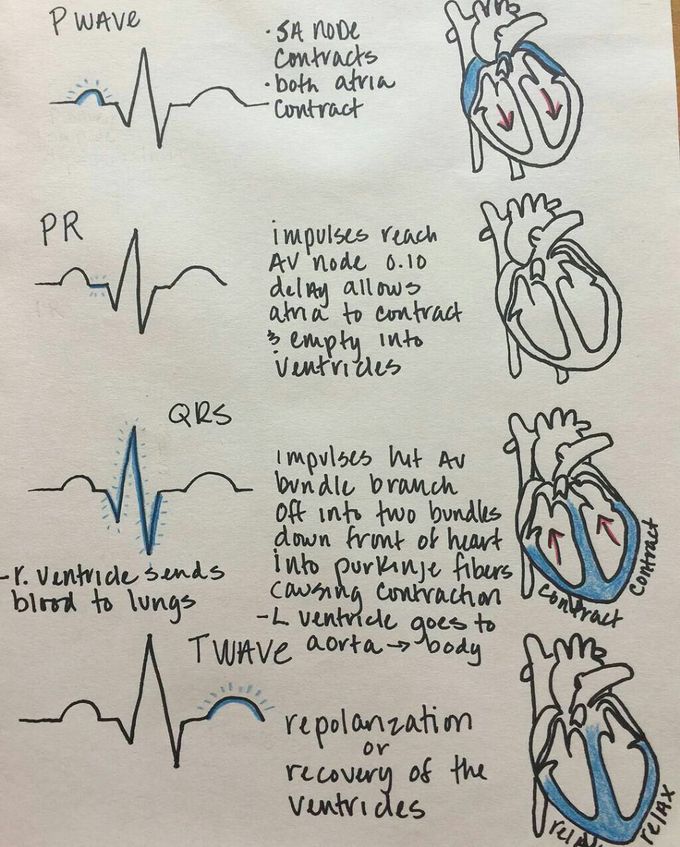 P WAVE
• SA NODE
contracts
• both atria
contract
PR
impulses reach
AV node 0.10
delay allows
atria to contract
& empty into
ventricles
QRS
impulses hit AV
bundle branch
off into two bundles
down front of heart
into purkinje fibers
causing contraction
- L ventricle goes to
aorta → body
- r. ventricle sends
blood to lungs
contract
contract
T WAVE
repolarization
or
recovery of the
ventricles
relax